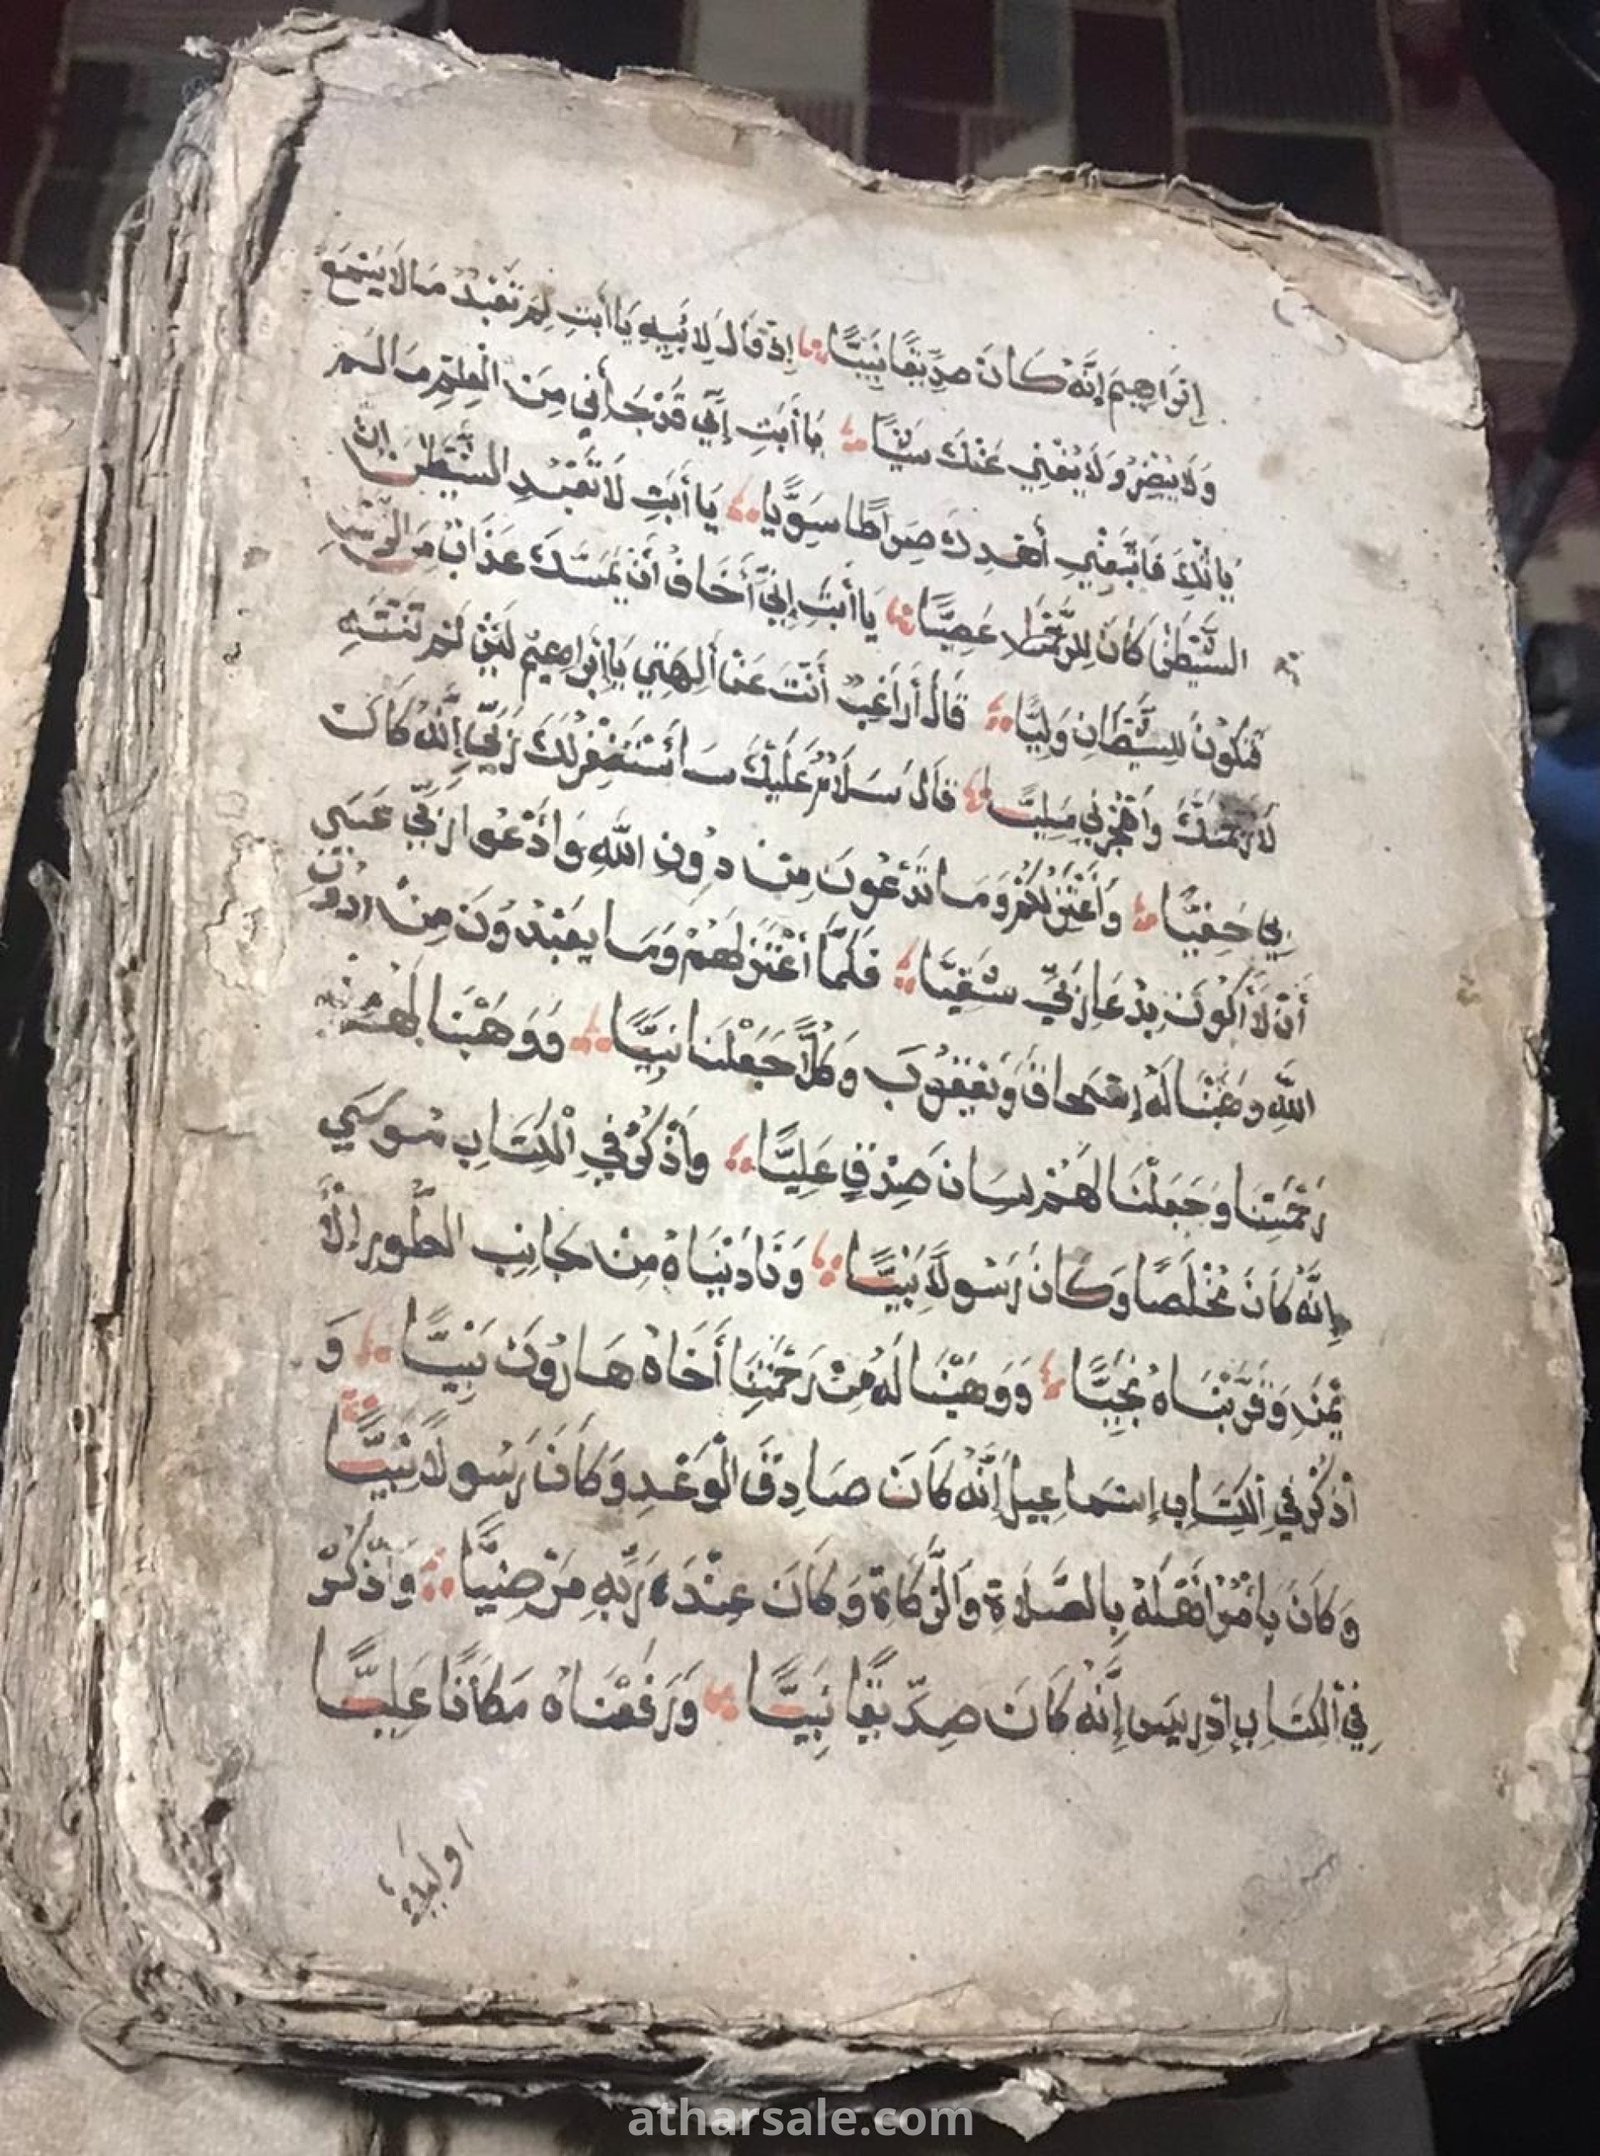 إبراهيم إنه كان صديقا نبيا إذ قال لابيه يا أبت لم تعبد ما لا يسمع
ولا يبصر ولا يغني عنك شيئا يا أبت إني قد جاءني من العلم ما لم
يأتك فاتبعني أهدك صراطا سويا يا أبت لا تعبد الشيطن إن
الشيطن كان للرحمن عصيا يا أبت إني أخاف أن يمسك عذاب من الرحمن
فتكون للشيطان وليا قال أراغب أنت عن ألهتي يا إبراهيم لئن لم تنته
لأرجمنك واهجرني مليا قال سلام عليك سأستغفر لك ربي إنه كان
بي حفيا وأعتزلكم وما تدعون من دون الله وأدعوا ربي عسى
أن لا أكون بدعا ربي شقيا فلما أعتزلهم وما يعبدون من دون
الله وهبنا له إسحاق ويعقوب وكلا جعلنا نبيا ووهبنا لهم من
رحمتنا وجعلنا لهم لسان صدق عليا واذكر في الكتاب موسى
إنه كان مخلصا وكان رسولا نبيا وناديناه من جانب الطور الأ
يمن وقربناه نجيا ووهبنا له من رحمتنا أخاه هارون نبيا و
أذكر في الكتاب إسماعيل إنه كان صادق الوعد وكان رسولا نبيا
وكان يأمر أهله بالصلاة والزكاة وكان عند ربه مرضيا واذكر
في الكتاب إدريس إنه كان صديقا نبيا ورفعناه مكانا عليا
اوليك
atharsale.com